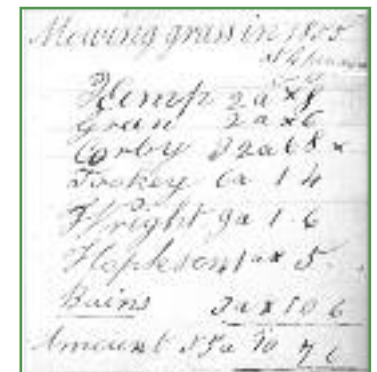 Mowing grass in 1855
Hemp 2a x 8
Gran 2a x 6
Corby 32a 6 8 x
Tookey 6a 1 4
Wright 9a 1 6
Hopkeson 1a x 5
Bains 3a x 10 6
Amount 55a 30 7 6